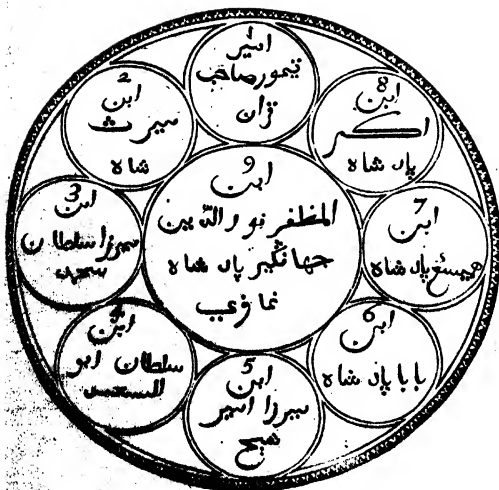 امير
تيمور صاحب
قران
2
ابن
شاه
3
ابن
ميرزا سلطان
محمد
4
ابن
سلطان ابو
5
ابن
ميرزا امير
شيخ
6
ابن
بابا پاد شاه
7
ابن
پاد شاه
8
ابن
اكبر
پاد شاه
9
ابن
المظفر نو والدين
جهانگير پاد شاه